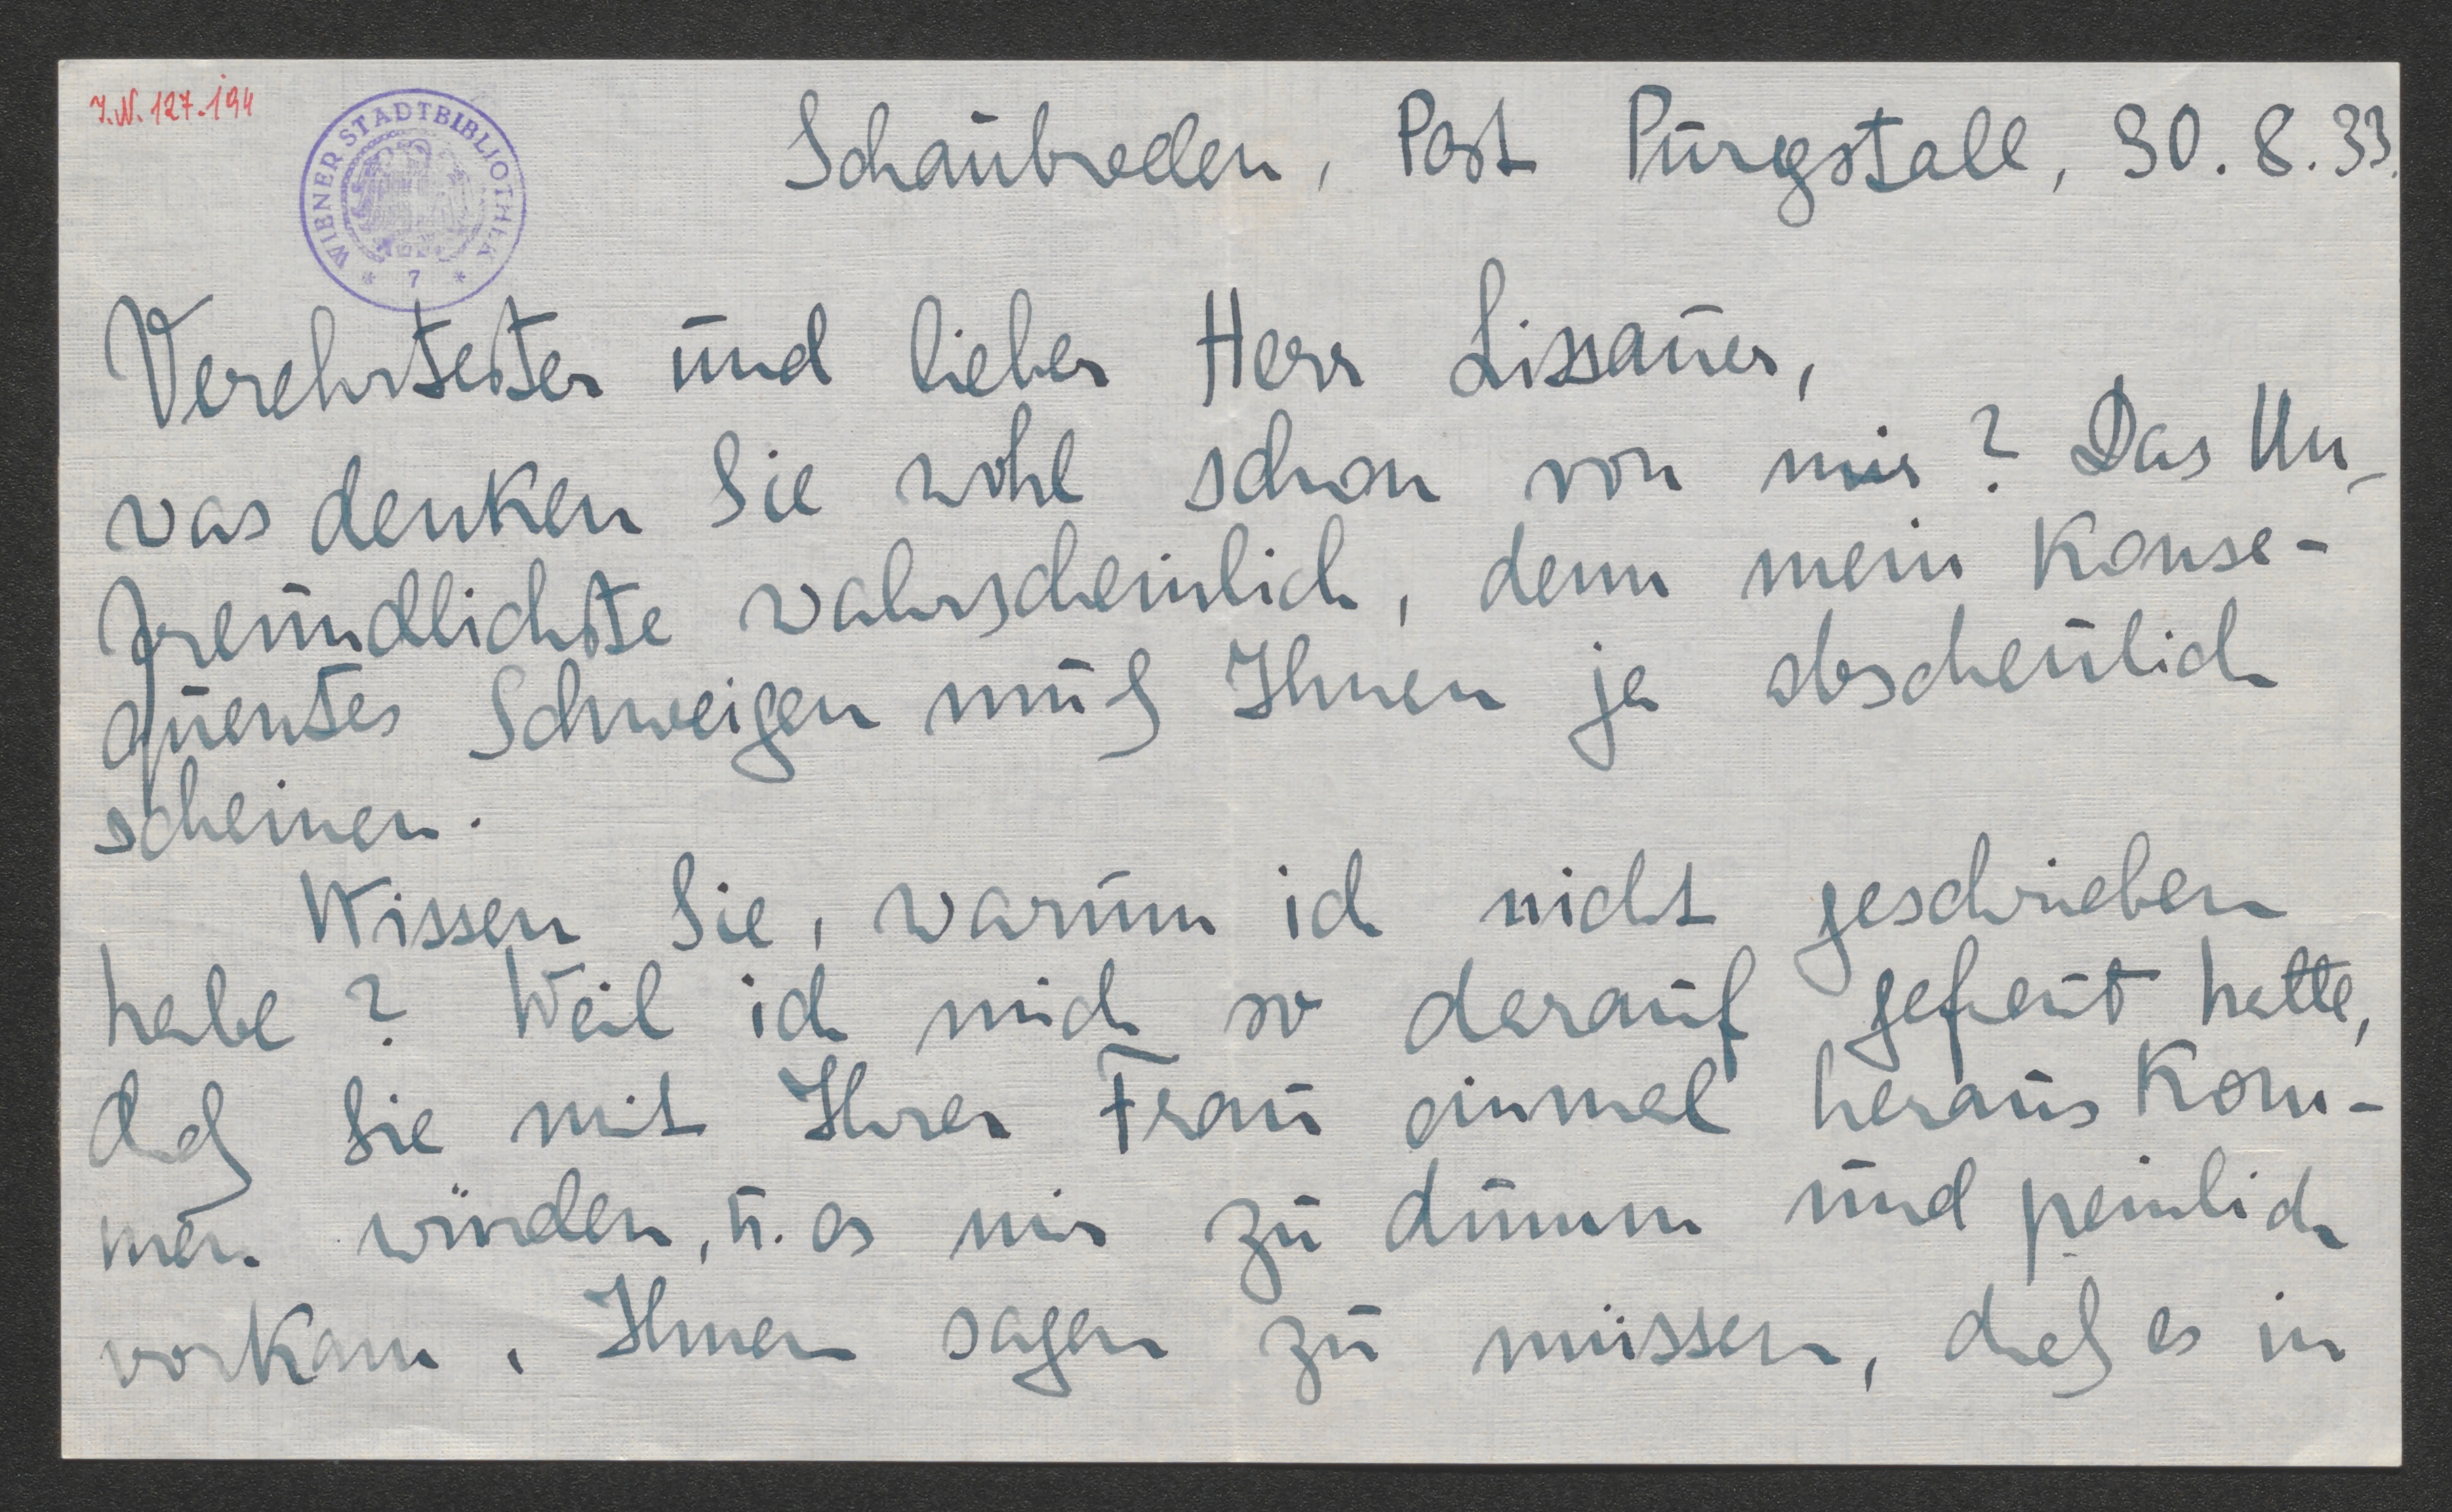 J.N. 127.194
WIENER STADTBIBLIOTHEK
* 7 *
Schaubreden, Post Purgstall, 30.8.33.
Verehrtester und lieber Herr Lissauer,
was denken Sie wohl schon von mir? Das Un-
freundlichste wahrscheinlich, denn mein Konse-
quentes Schweigen muß Ihnen ja abscheulich
scheinen.
Wissen Sie, warum ich nicht geschrieben
habe? Weil ich mich so darauf gefreut hatte,
daß Sie mit Ihrer Frau einmal heraus Kom-
men würden, u. es mir zu dumm und peinlich
vorkam, Ihnen sagen zu müssen, daß es in